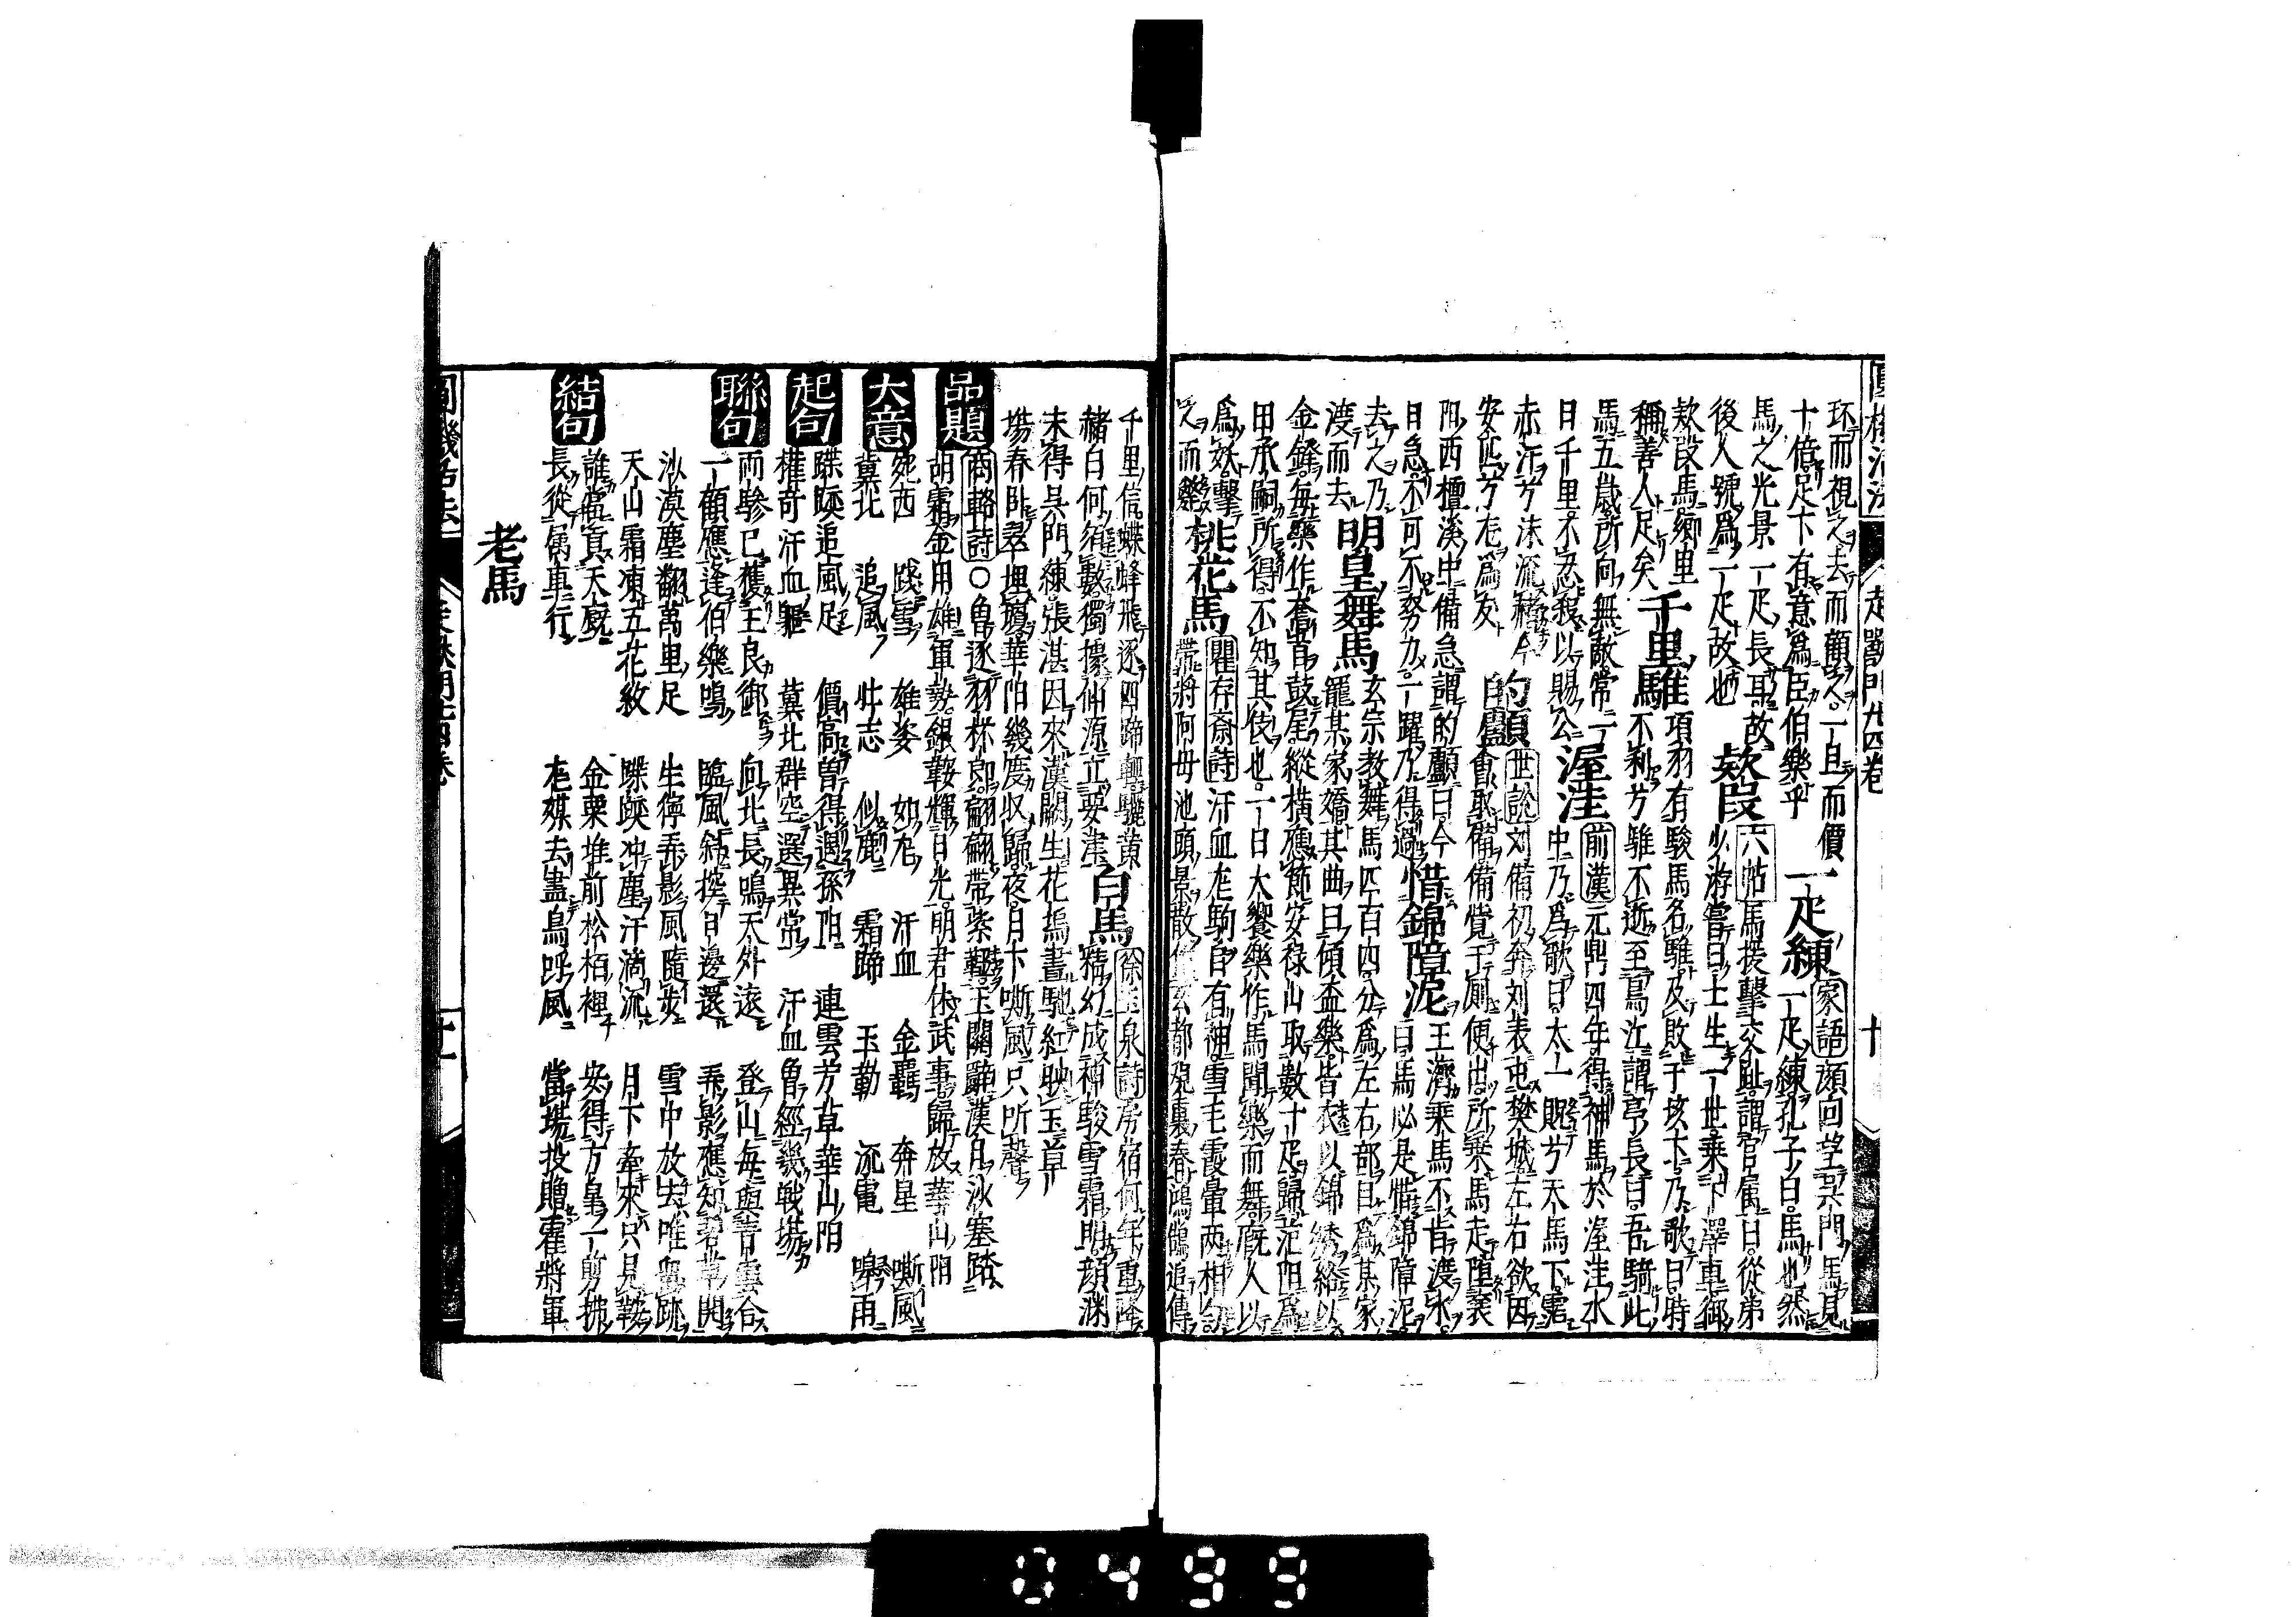 環而視之去而顧之一旦而價
十倍足下有意爲臣伯樂乎 一疋練 家語 顔回望呉門馬見一疋練孔子曰馬也然
馬之光景一疋長耳故
後人號爲一疋故也 欵段 六帖 馬援擊交趾謂官属曰從弟少游嘗曰士生一世乘下澤車御
欵段馬鄉里
稱善人足矣 千里騅 項羽有駿馬名騅及敗于垓下乃歌曰時不利兮騅不逝至烏江謂亭長曰吾騎此
馬五歲所向無敵常一
日千里不忍殺以賜公 渥洼 前漢 元鼎四年得神馬於渥洼水中乃爲歌曰太一貺兮天馬下霑
赤汗兮沫流赭今
安匹兮龙爲友 的顱 世說 刘備初奔刘表屯樊城左右欲因會取備備覺于厠便出所乘馬走墮襄
阳西檀溪中備急謂的顱曰今
日急不可不努力一躍乃得過 惜錦障泥 王濟乘馬不肯渡水曰馬必是惜錦障泥
去之乃
渡而去 明皇舞馬 玄宗教舞馬四百四分爲左右部目爲某家寵某家嬌其曲曰傾盃樂皆衣以錦綉絡以
金鐸每樂作奮首鼓尾縱橫應節安禄山取數十疋歸范阳爲
田承嗣所得不知其伎也一日大饗樂作馬聞樂而舞廐人以
爲妖擊
之而斃 桃花馬 瞿存斎詩 汗血龙駒自有神雪毛霞暈两相
帶將阿母池頭景散
千里信蝶蜂飛逐四蹄輕驪黄
赭白何須數獨據仙源立要津 白馬 徐玉泉詩 房宿何年重降精幻成神駿雪霜明顔渊
未得呉門練張湛因來漢闕生花塢晝馳紅映玉草
場春卧翠埋瓊華阳幾度収歸夜月下嘶風只听聲
品題 商輅詩 ○魯逐羽林郎翩翩帶紫韁玉關辭漢月沙塞踏
胡霜金用雄軍勢銀鞍輝日光明君休武事歸放華山阳
大意 宛西 踐雪 雄姿 如龙 汗血 金羈 奔星 嘶風
冀北 追風 壯志 似鹿 霜蹄 玉勒 流電 噴雨
起句 蹀𨇨追風足 價高曽得遇孫阳 連雲芳草華山阳
權奇汗血軀 冀北群空選異常 汗血魯經幾戦場
聯句 两驂已獲王良御 向北長鳴天外遠 登山每與青雲合
一顧應逢伯樂鳴 臨風斜控日邊還 弄影應知碧草開
沙漠塵翻萬里足 生停弄影風隨 雪中放去唯無跡
天山霜凍五花紋 蹀𨇨冲塵汗滴流 月下牽來只見鞍
結句 誰當貢天厩 金粟堆前松栢裡 安得方皐一剪拂
長從属車行 龙媒去盡鳥呼風 當場投贈霍將軍
老馬
0499